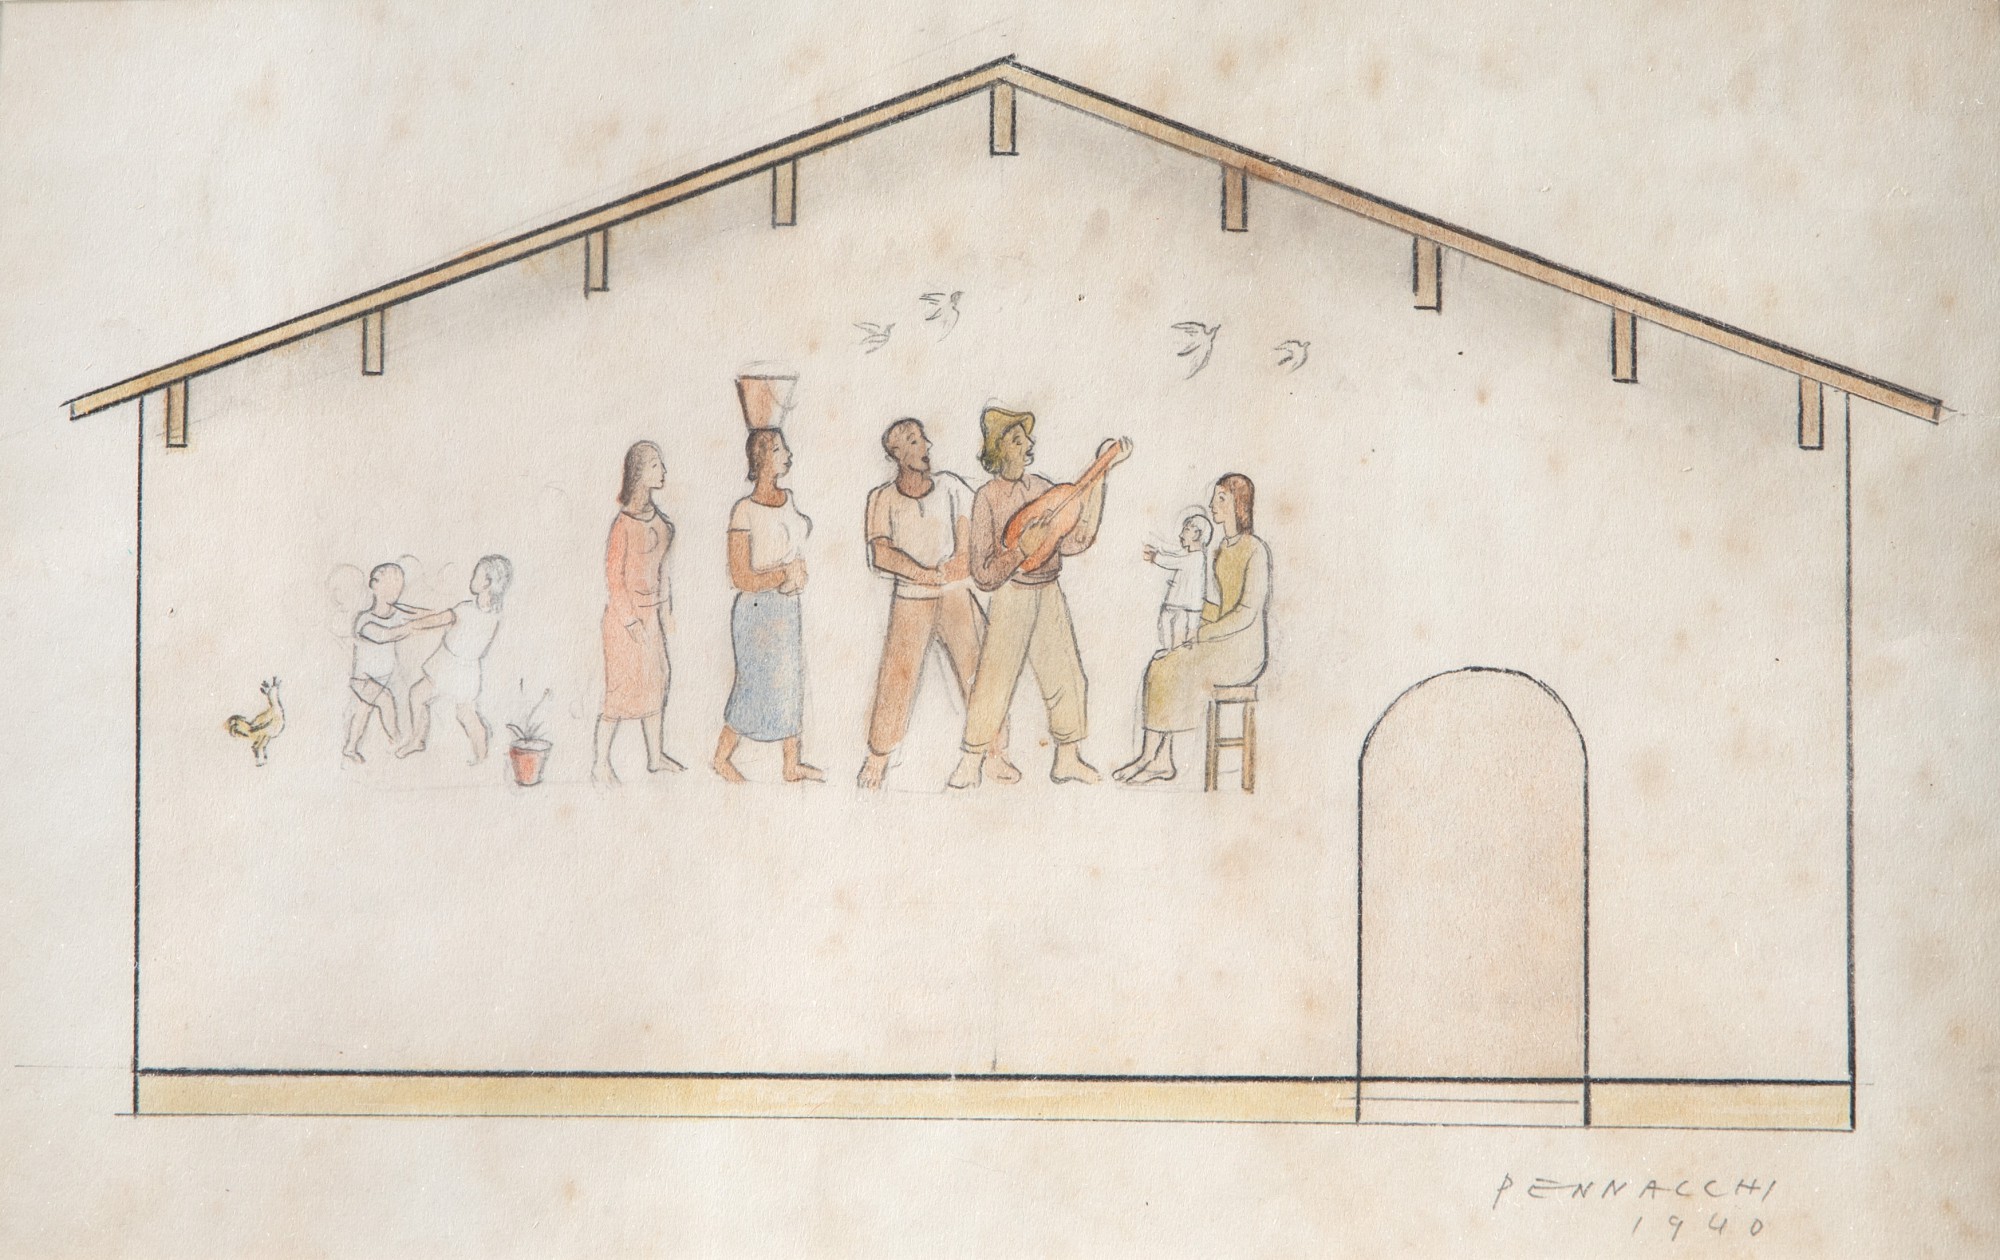 PENNACCHI
1940